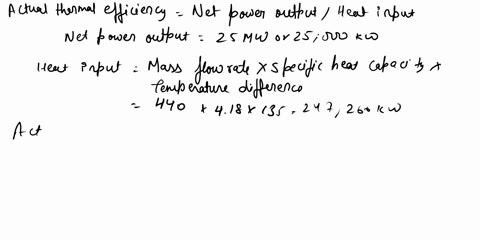 Actual thermal efficiency = Net power output / Heat input
Net power output = 25 MW or 25,000 kW
Heat input = Mass flow rate X Specific heat capacity X
Temperature difference
= 440 x 4.18 x 135 = 247,260 kW
Act